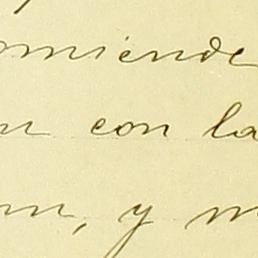 omiende
n con la
m, y m